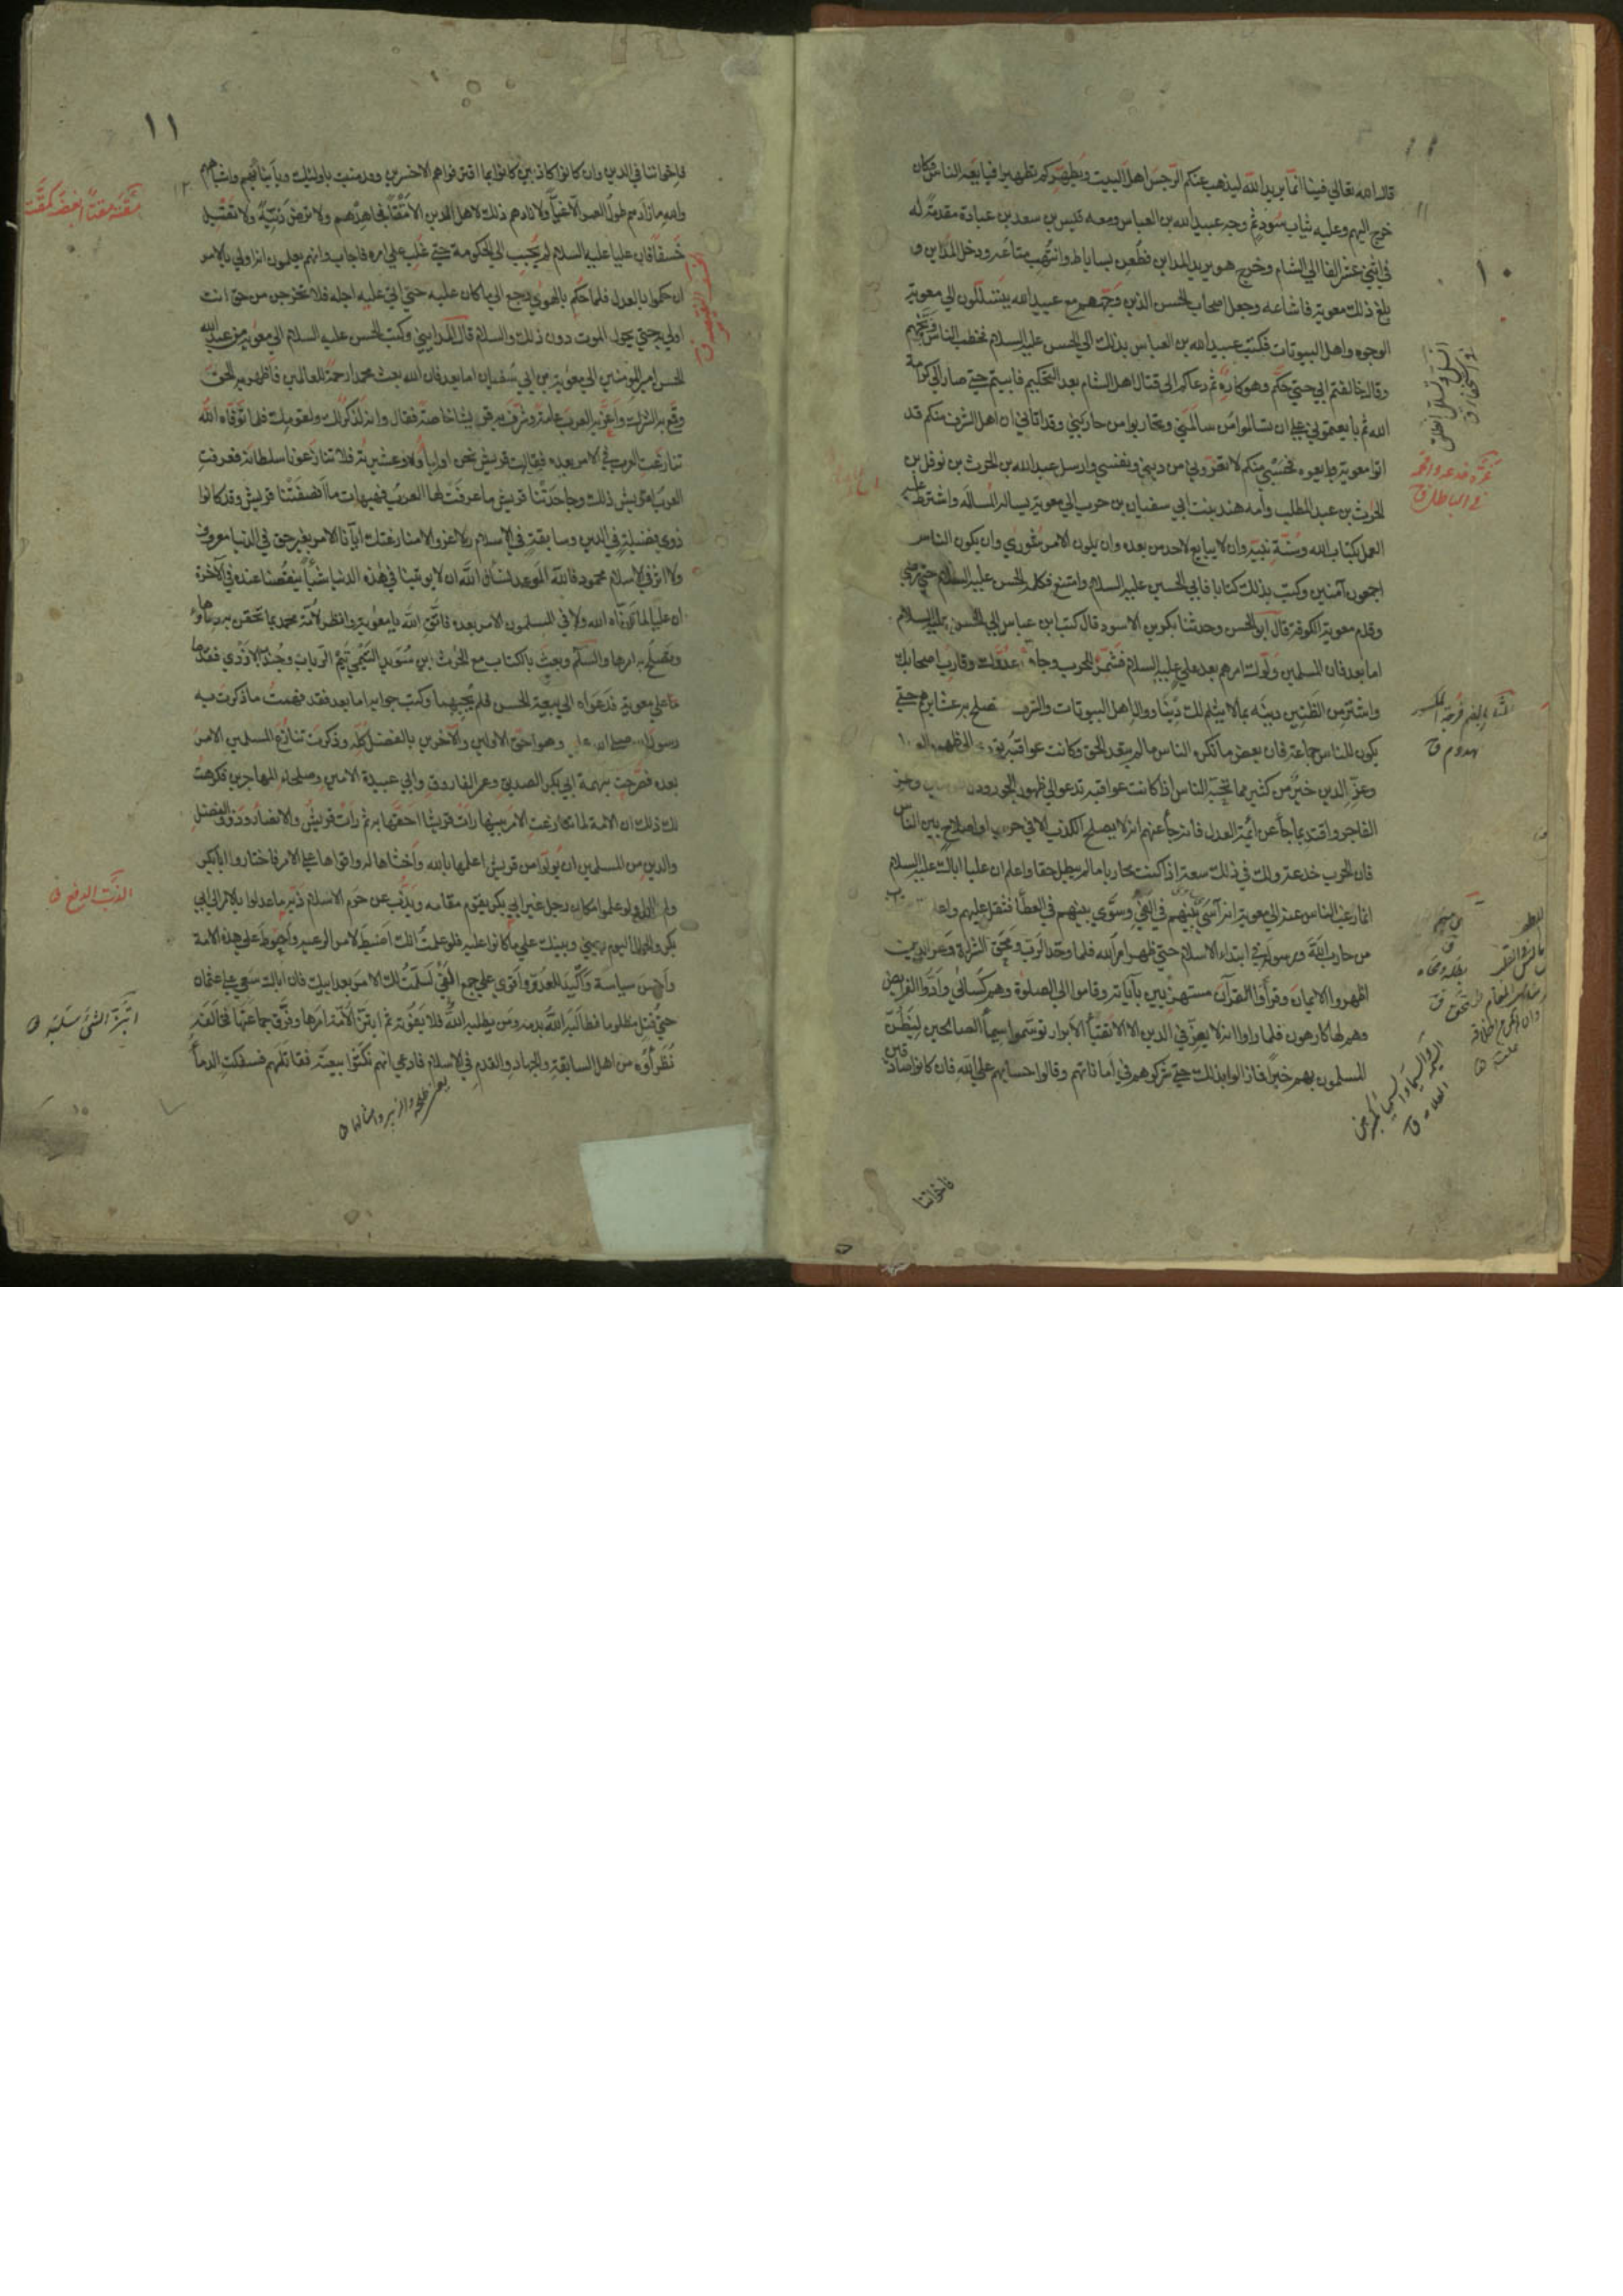 قال الله تعالى فينا انما يريد الله ليذهب عنكم الرجس اهل البيت ويطهركم تطهيرا فبايعه الناس وكان
خرج اليهم وعليه ثياب سود ثم وجه عبيد الله بن العباس ومعه قيس بن سعد بن عبادة مقدمة له
في اثني عشر الفا الى الشام وخرج هو يريد المداين فطعن بساباط وانتهب متاعه ودخل المداين و
بلغ ذلك معوية فاشاعه وجعل اصحاب الحسن الذين وجههم مع عبيد الله يتسللون الى معوية
الوجوه واهل البيوتات فكتب عبيد الله بن العباس بذلك الى الحسن عليه السلام فخطب الناس ووبخهم
وقال خالفتم ابي حتى حكم وهو كاره ثم دعاكم الى قتال اهل الشام بعد التحكيم فابيتم حتى صار الى كرامة
الله ثم بايعتموني على ان تسالموا من سالمني وتحاربوا من حاربني وقد اتاني ان اهل الشرف منكم قد
اتوا معوية وبايعوه فحسبي منكم لا تغروني من ديني ونفسي وارسل عبد الله بن الحرث بن نوفل بن
الحرث بن عبد المطلب وامه هند بنت ابي سفيان بن حرب الى معوية يساله المسالة واشترط عليه
العمل بكتاب الله وسنة نبيه وان لا يبايع لاحد من بعده وان يكون الامر شورى وان يكون الناس
اجمعون آمنين وكتب بذلك كتابا فابى الحسين عليه السلام وامتنع فكلمه الحسن عليه السلام حتى رضي
وقدم معوية الكوفة قال ابو الحسن وحدثنا ابو بكر بن الاسود قال كتب ابن عباس الى الحسن عليه السلام
اما بعد فان المسلمين ولوك امرهم بعد علي عليه السلام فشمر للحرب وجاهد عدوك وقارب اصحابك
واشتر من الظنين دينه بما لا يثلم لك دينا ووال اهل البيوتات والشرف تستصلح به عشايرهم حتى
يكون الناس جماعة فان بعض ما يكره الناس ما لم يتعد الحق وكانت عواقبه تؤدي الى ظهور العدل
وعز الدين خير من كثير مما يحبه الناس اذا كانت عواقبه تدعو الى ظهور الجور وذل وعز
الفاجر واقتد بما جاء عن ائمة العدل فانه جاء عنهم انه لا يصلح الكذب الا في حرب او اصلاح بين الناس
فان الحرب خدعة ولك في ذلك سعة اذا كنت محاربا ما لم تبطل حقا واعلم ان عليا اباك عليه السلام
انما رغب الناس عنه الى معوية انه آسى بينهم في الفيء وسوى بينهم في العطاء فثقل عليهم واعلم
من حارب الله ورسوله في ابتداء الاسلام حتى ظهر امر الله فلما وحد الرب ومحق الشرك وعز الدين
اظهروا الايمان وقرأوا القرآن مستهزئين بآياته وقاموا الى الصلوة وهم كسالى وادوا الفرايض
وهم لها كارهون فلما راوا انه لا يعز في الدين الا الاتقياء الابرار توسموا بسيما الصالحين ليظن
المسلمون بهم خيرا فما زالوا بذلك حتى شركوهم في اماناتهم وقالوا حسابهم على الله فان كانوا صادقين
فاخواننا
١١
فاخواننا في الدين وان كانوا كاذبين كانوا بما اقترفوا هم الاخسرين وقد منيت باولئك وبابنائهم واشباههم
والله ما زادهم طول العمر الا غيا ولا زادهم ذلك لاهل الدين الا مقتا فجاهدهم ولا ترض دنية ولا تقبل
خسفا فان عليا عليه السلام لم يجب الى الحكومة حتى غلب على امره فاجاب وانهم يعلمون انه اولى بالامر
ان حكموا بالعدل فلما حكم بالهوى رجع الى ما كان عليه حتى اتى عليه اجله فلا تخرجن من حق انت
اولى به حتى يحول الموت دون ذلك والسلام قال المدايني وكتب الحسن عليه السلام الى معوية من عبد الله
الحسن امير المومنين الى معوية بن ابي سفيان اما بعد فان الله بعث محمدا رحمة للعالمين فاظهر به الحق
وقمع به الشرك واعز به العرب عامة وشرف به قريشا خاصة فقال وانه لذكر لك ولقومك فلما توفاه الله
تنازعت العرب في الامر بعده فقالت قريش نحن اولياؤه وعشيرته فلا تنازعونا سلطانه فعرفت
العرب لقريش ذلك وجاحدتنا قريش ما عرفت لها العرب فهيهات ما انصفتنا قريش وقد كانوا
ذوي فضيلة في الدين وسابقة في الاسلام ولا غرو الا منازعتك ايانا الامر بغير حق في الدنيا معروف
ولا اثر في الاسلام محمود فالله الموعد نسال الله ان لا يوتينا في هذه الدنيا شيئا ينقصنا عنده في الآخرة
ان عليا لما توفاه الله ولاني المسلمون الامر بعده فاتق الله يا معوية وانظر لامة محمد ما تحقن به دماؤها
وتصلح به امرها والسلام وبعث بالكتاب مع الحرث بن سويد التيمي تيم الرباب وجندب الازدي فقدما
على معوية فدعواه الى بيعة الحسن فلم يجبهما وكتب جوابه اما بعد فقد فهمت ما ذكرت به
رسول الله صلى الله عليه وهو احق الاولين والآخرين بالفضل كله وذكرت تنازع المسلمين الامر
بعده فصرحت بتهمة ابي بكر الصديق وعمر الفاروق وابي عبيدة الامين وصلحاء المهاجرين فكرهت
لك ذلك ان الامة لما تنازعت الامر بينها رات قريشا احقها به ثم رات قريش والانصار وذوو الفضل
والدين من المسلمين ان يولوا من قريش اعلمها بالله واخشاها له واقواها على الامر فاختاروا ابا بكر
ولم يالوا ولو علموا مكان رجل غير ابي بكر يقوم مقامه ويذب عن حرم الاسلام ذبه ما عدلوا بالامر الى ابي
بكر والحال اليوم بيني وبينك على ما كانوا عليه فلو علمت انك اضبط لامر الرعية واحوط على هذه الامة
واحسن سياسة واكيد للعدو واقوى على جمع الفيء لسلمت لك الامر بعد ابيك فان اباك سعى على عثمان
حتى قتل مظلوما فطالب الله بدمه ومن يطلبه الله فلا يفوته ثم ابتز الامة امرها وفرق جماعتها فخالفه
نظراؤه من اهل السابقة والجهاد والقدم في الاسلام فادعى انهم نكثوا بيعته فقاتلهم فسفكت الدماء
الذب الدفع
ابتز الشئ سلبه
يعني طلحه والزبير وامثالها